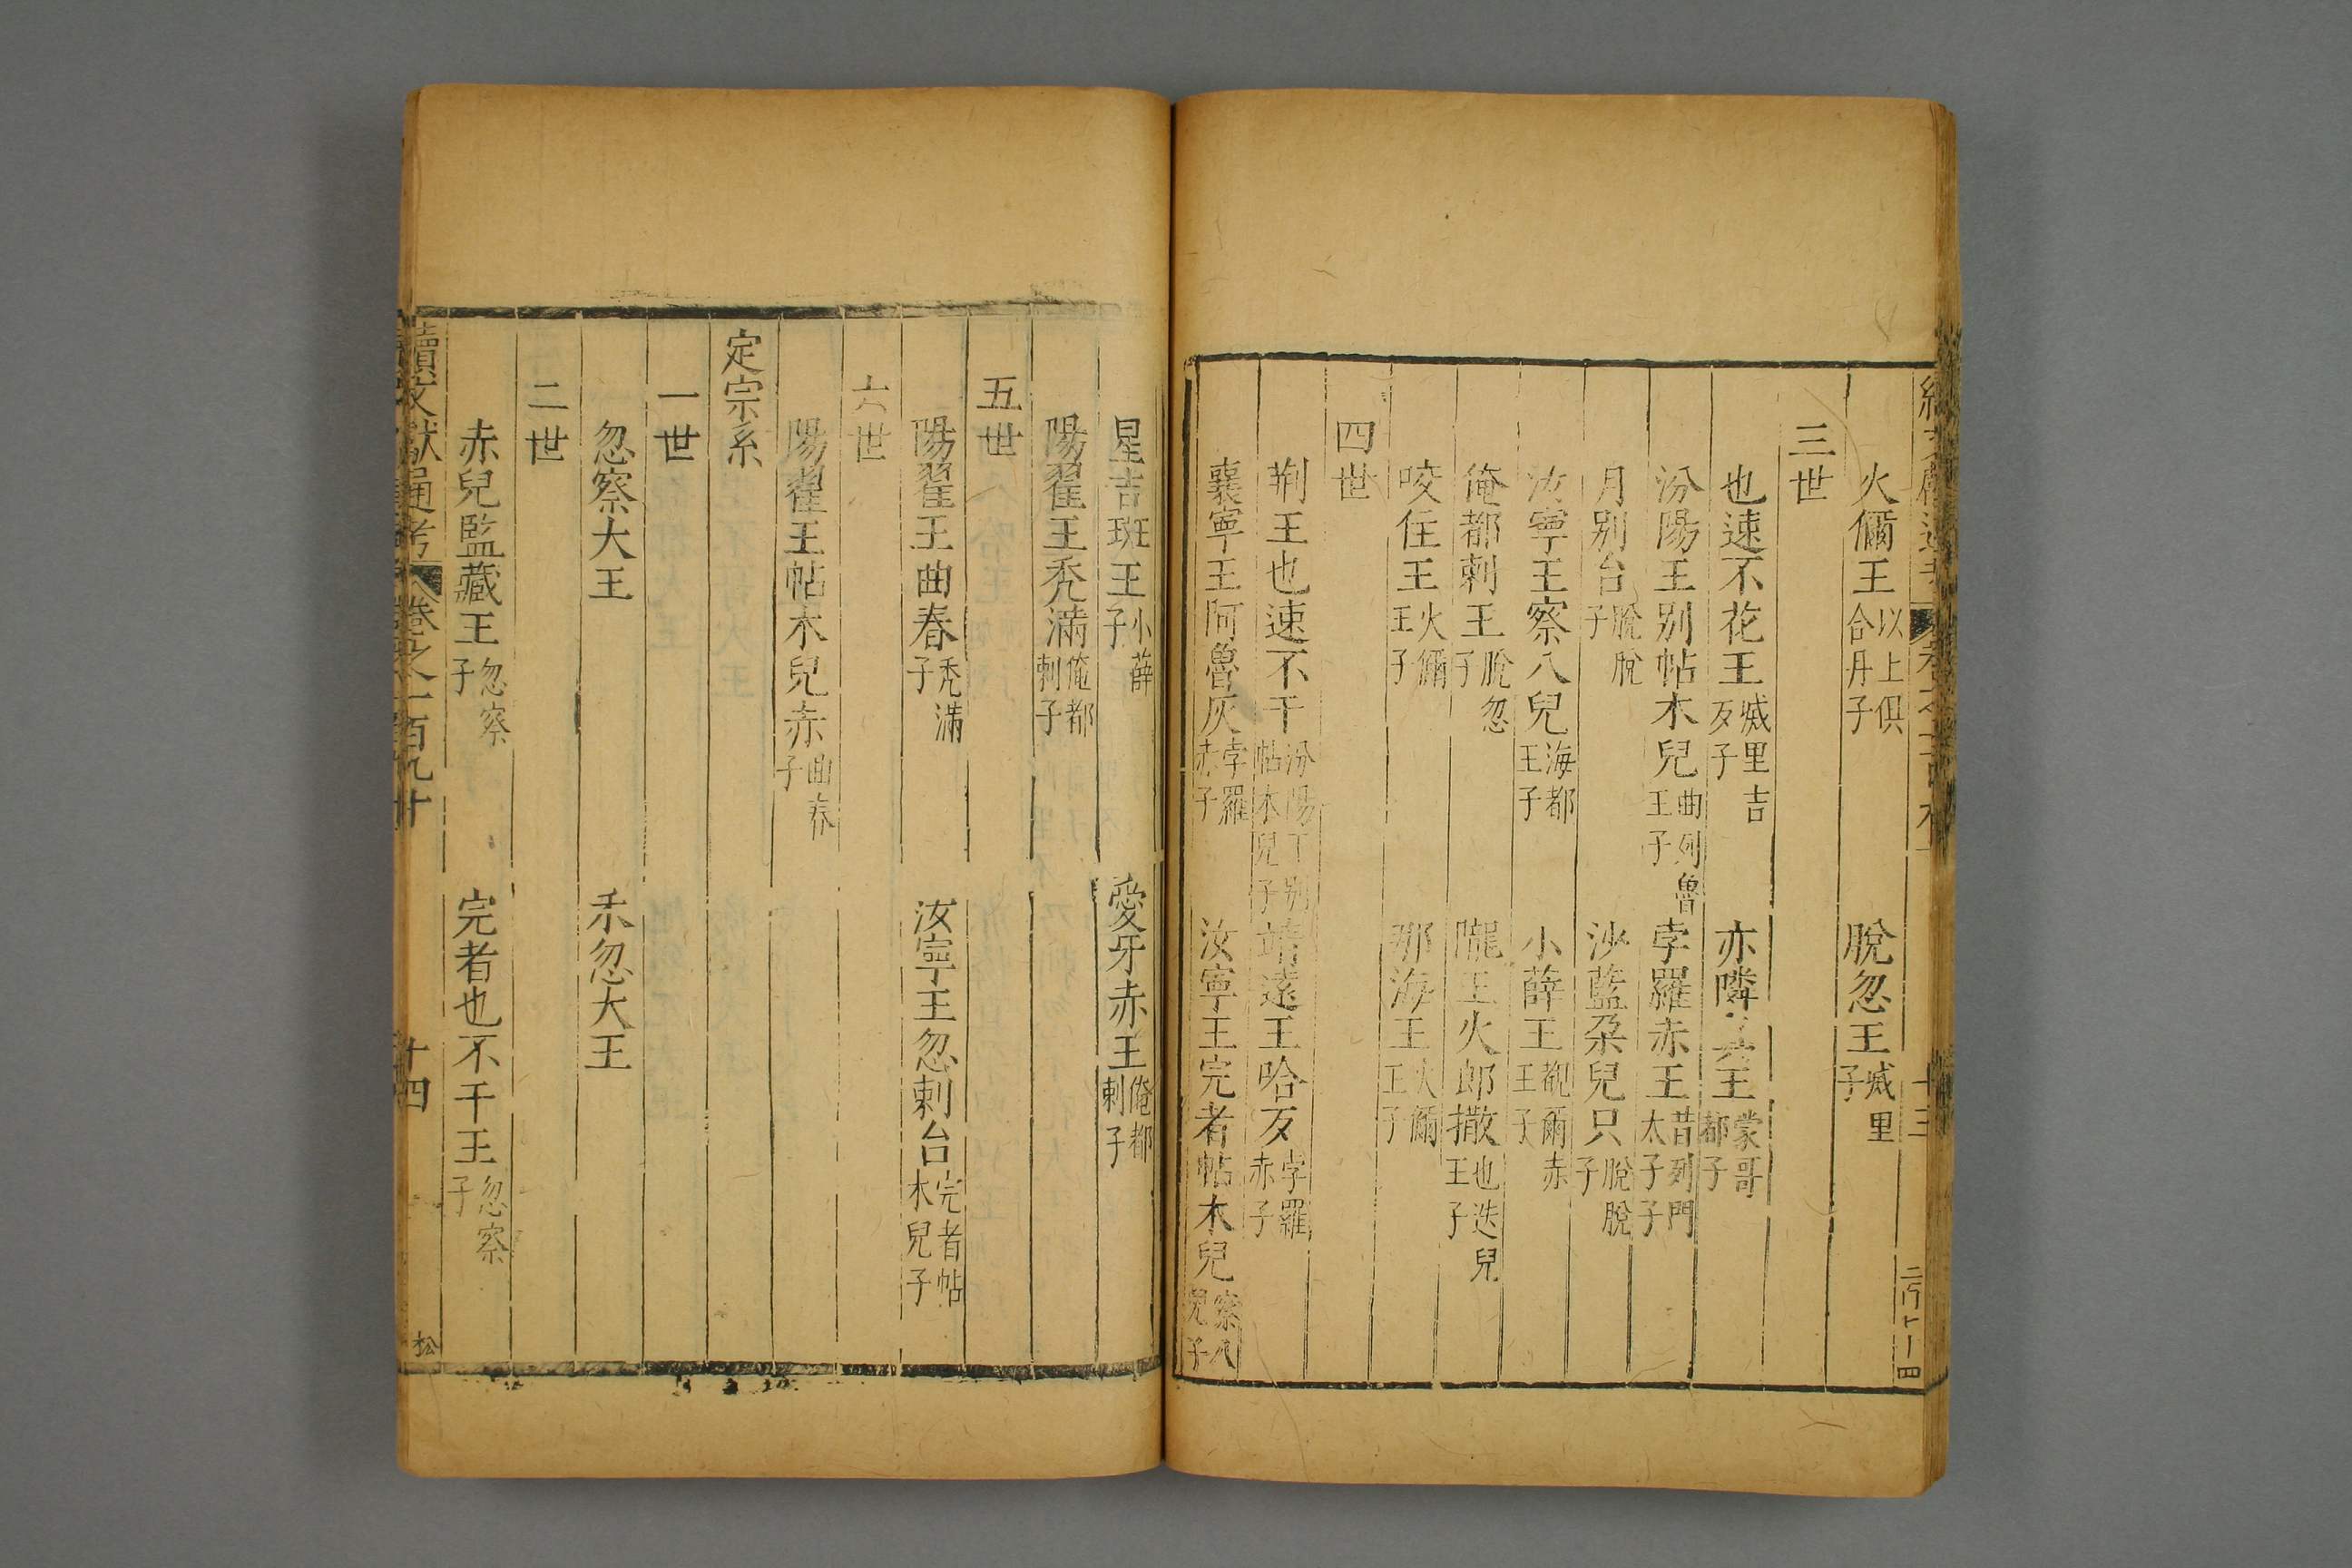 火儞王以上俱合丹子 脫忽王烕里子
三世
也速不花王烕里吉歹子 亦隣 王蒙哥都子
汾陽王别帖木兒曲列魯王子 孛羅赤王昔列門太子子
月别台脫脫子 沙藍朶兒只脫脫子
汝寧王察八兒海都王子 小薛王覩爾赤王子
俺都剌王脫忽子 隴王火郎撒也迭兒王子
咬住王火儞王子 那海王火儞王子
四世
荆王也速不干汾陽王别帖木兒子 靖遠王哈歹孛羅赤子
襄寧王阿魯灰孛羅赤子 汝寧王完者帖木兒察八兒子
星吉班王小薛子 愛牙赤王俺都剌子
陽翟王禿滿俺都剌子
五世
陽翟王曲春禿滿子 汝寧王忽剌台完者帖木兒子
六世
陽翟王帖木兒赤曲春子
定宗系
一世
忽察大王 禾忽大王
二世
赤兒監藏王忽察子 完者也不干王忽察子
續文獻通考 卷之一百九十 十四 松